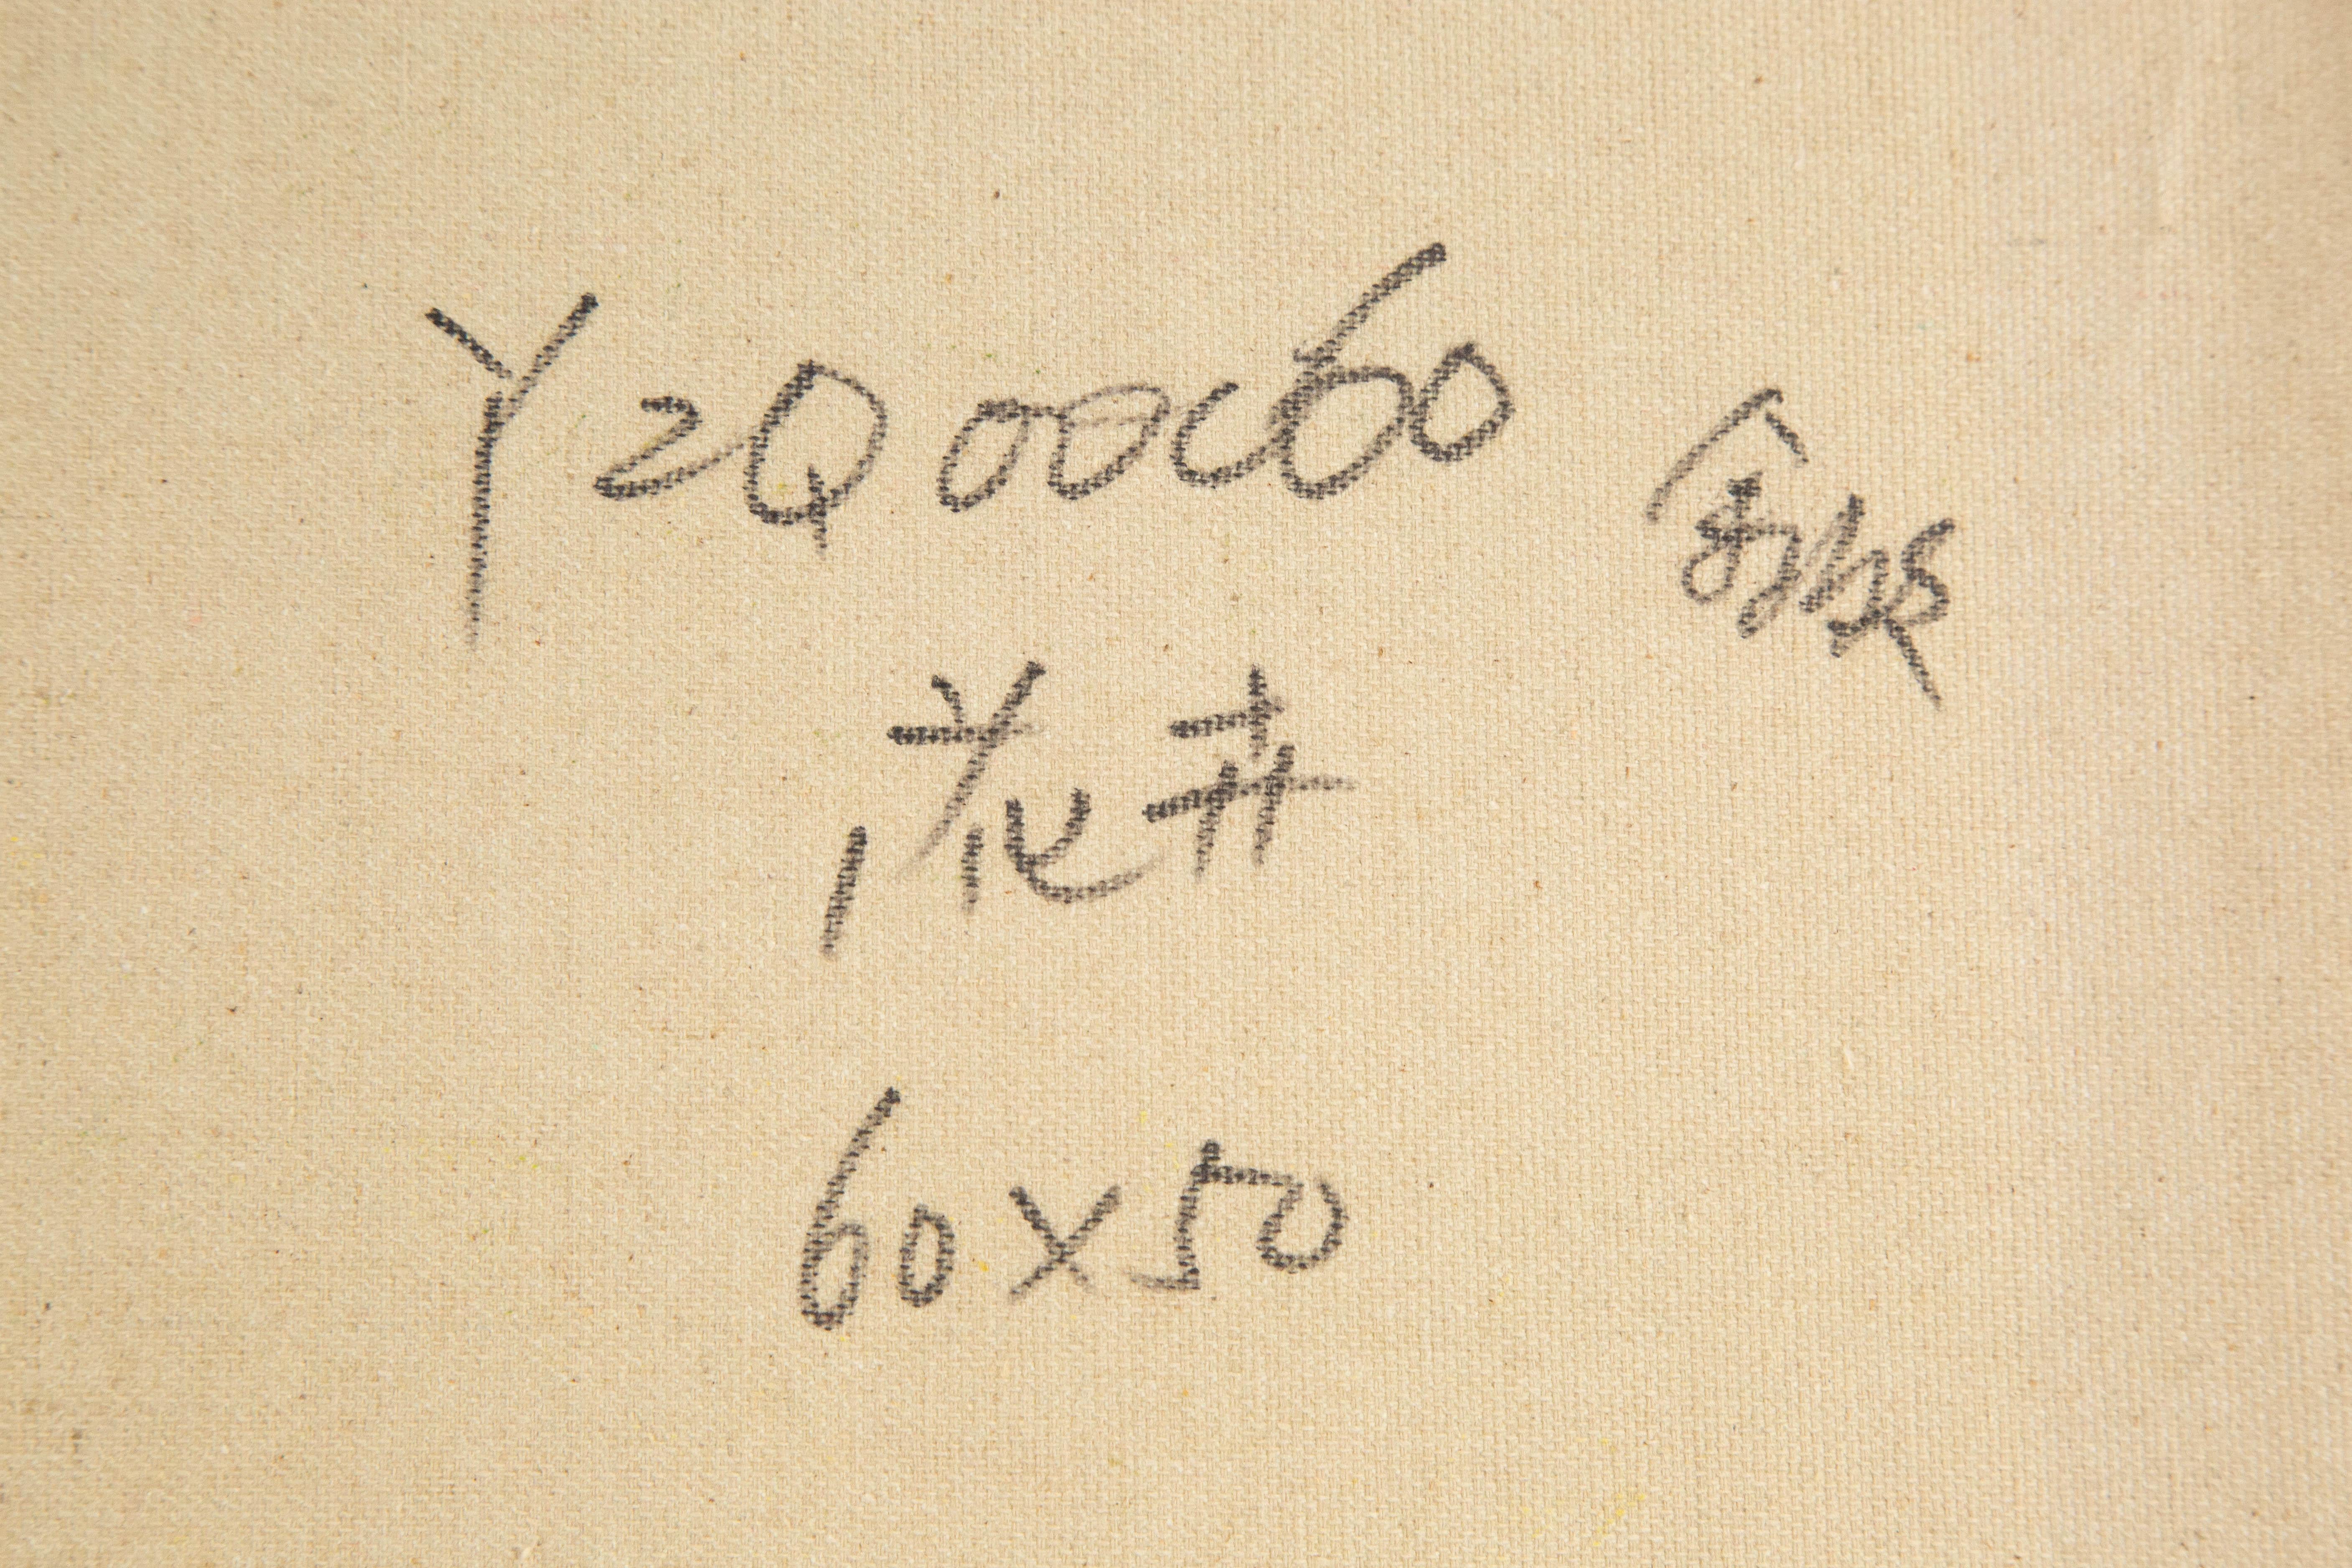 YZQ000060
花卉
60×50